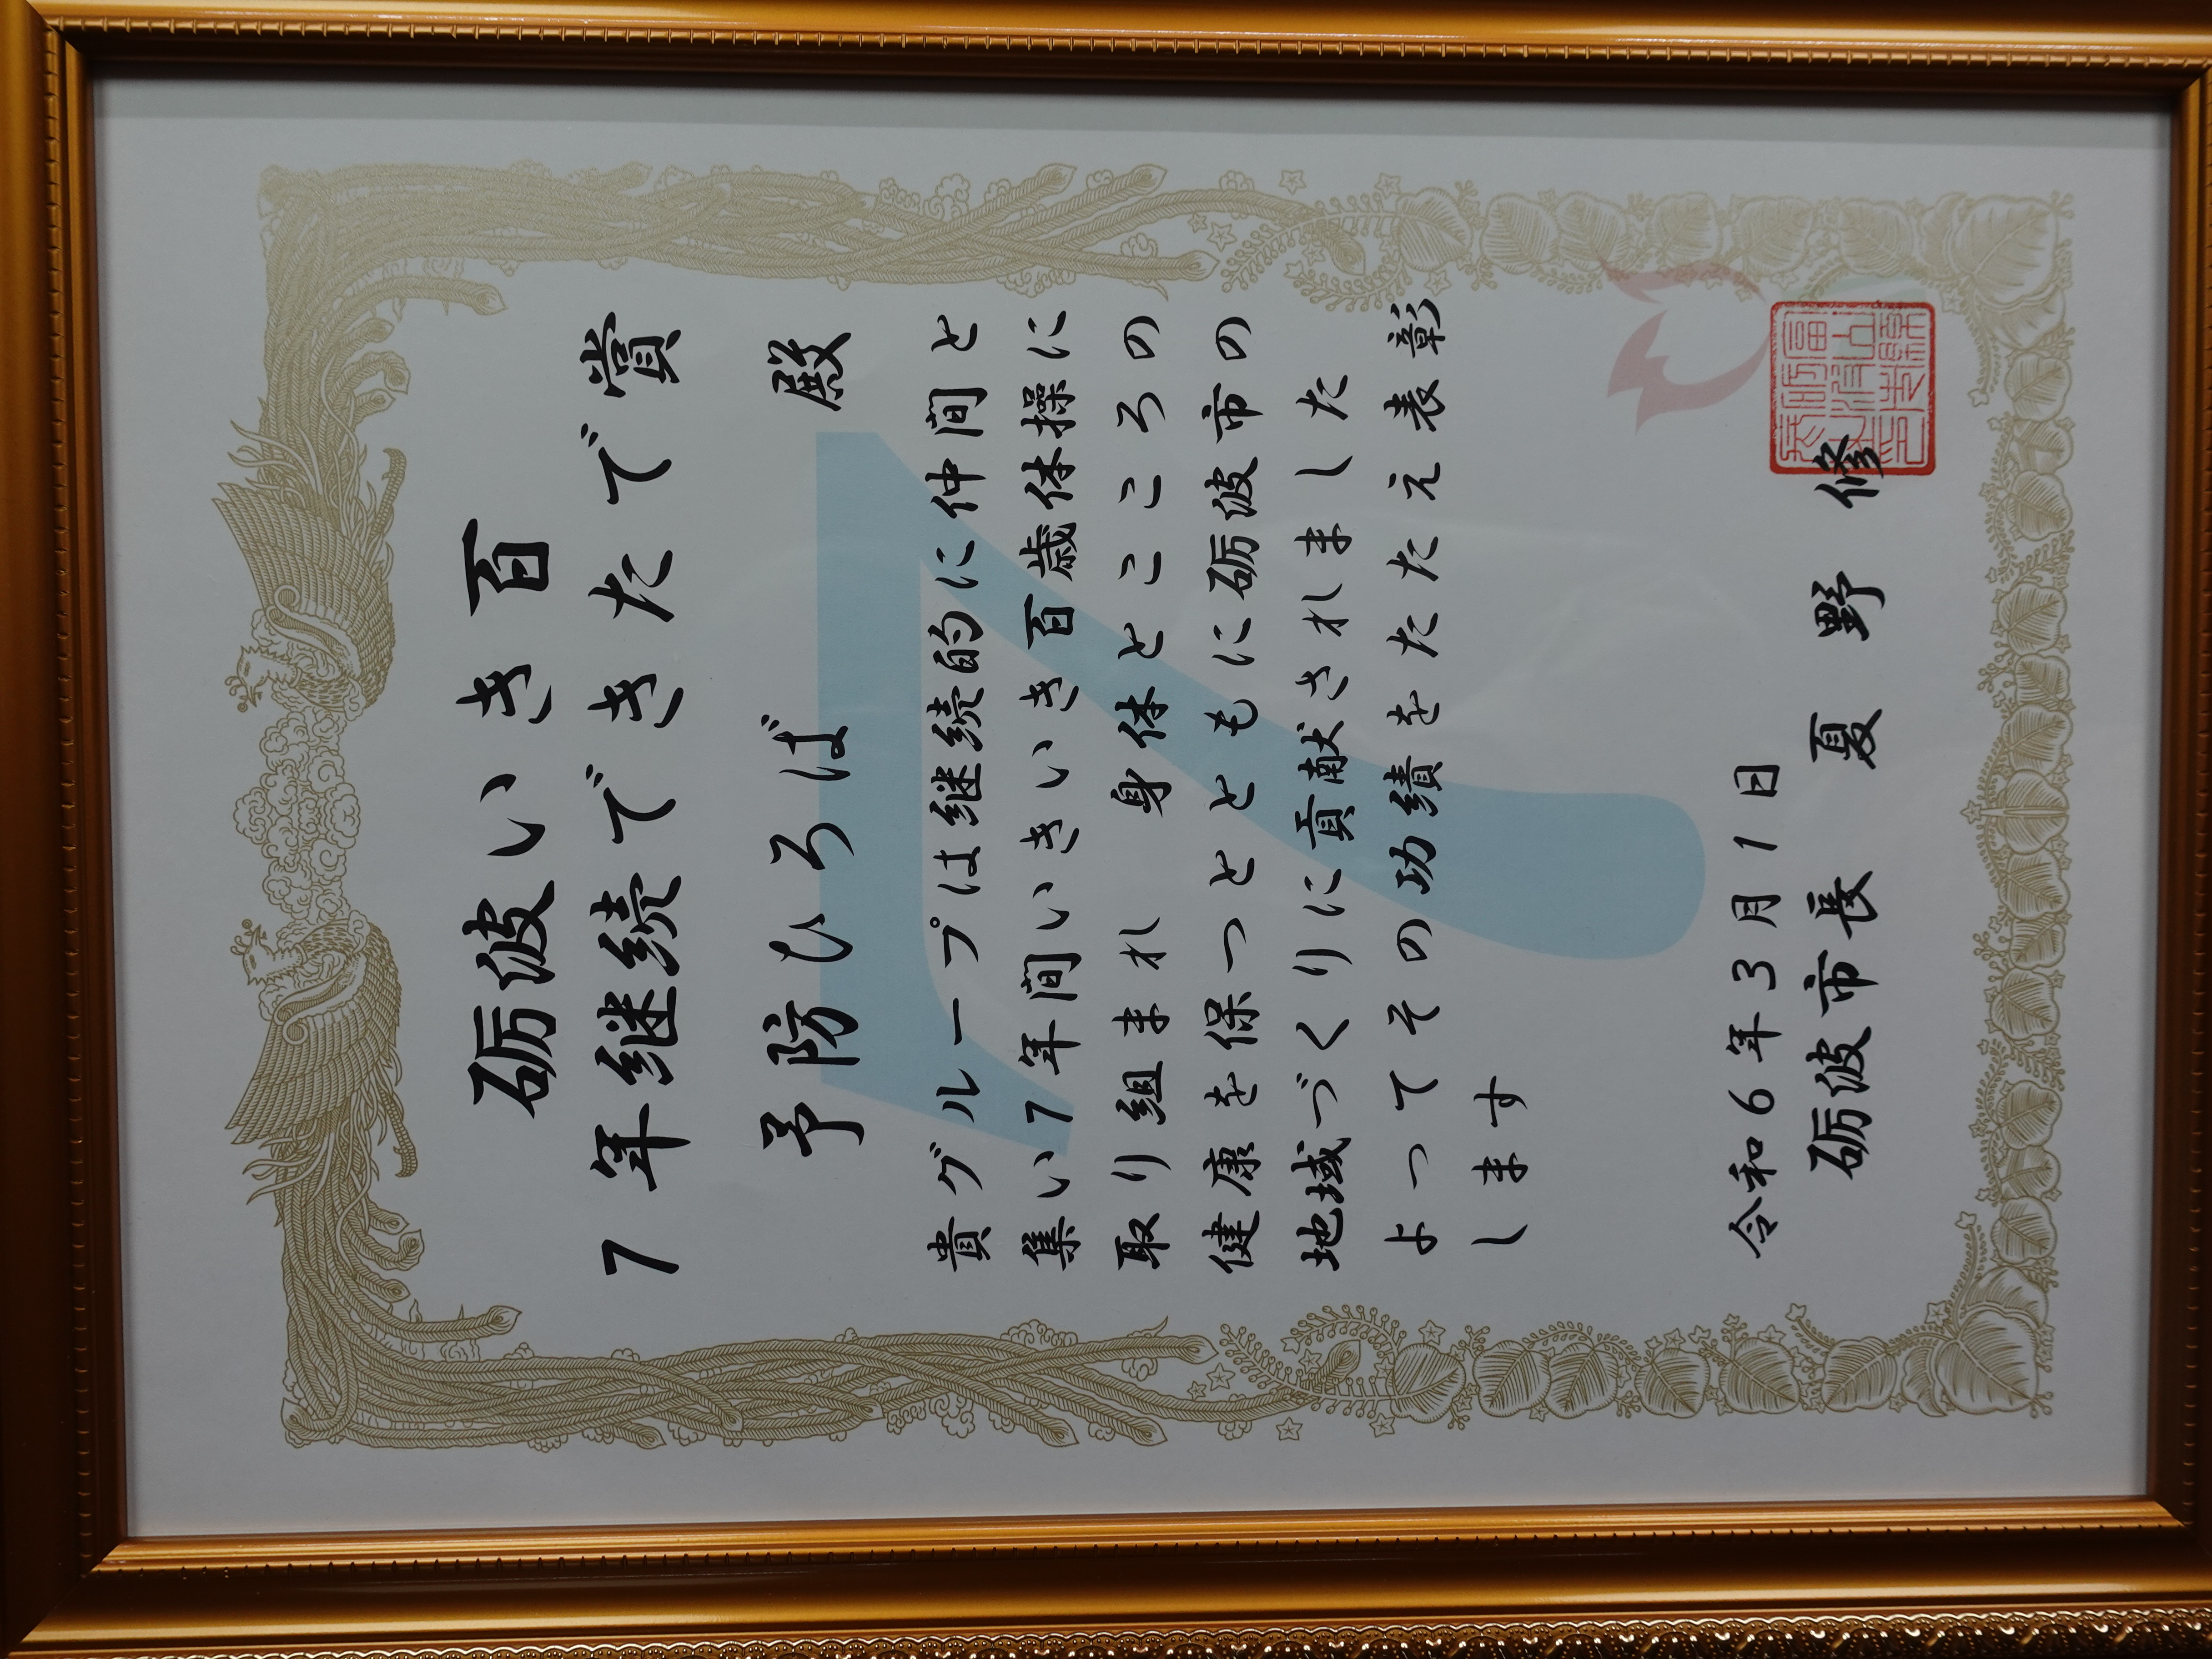 砺波いき百
7年継続できたで賞
予防ひろば 殿
貴グループは継続的に仲間と
集い7年間いきいき百歳体操に
取り組まれ 身体とこころの
健康を保つとともに砺波市の
地域づくりに貢献されました
よってその功績をたたえ表彰
します
令和6年3月1日
砺波市長 夏野 修